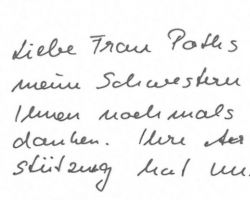 Liebe Frau Paths
meine Schwestern
Ihnen nochmals
danken. Ihre
stützung hat uns